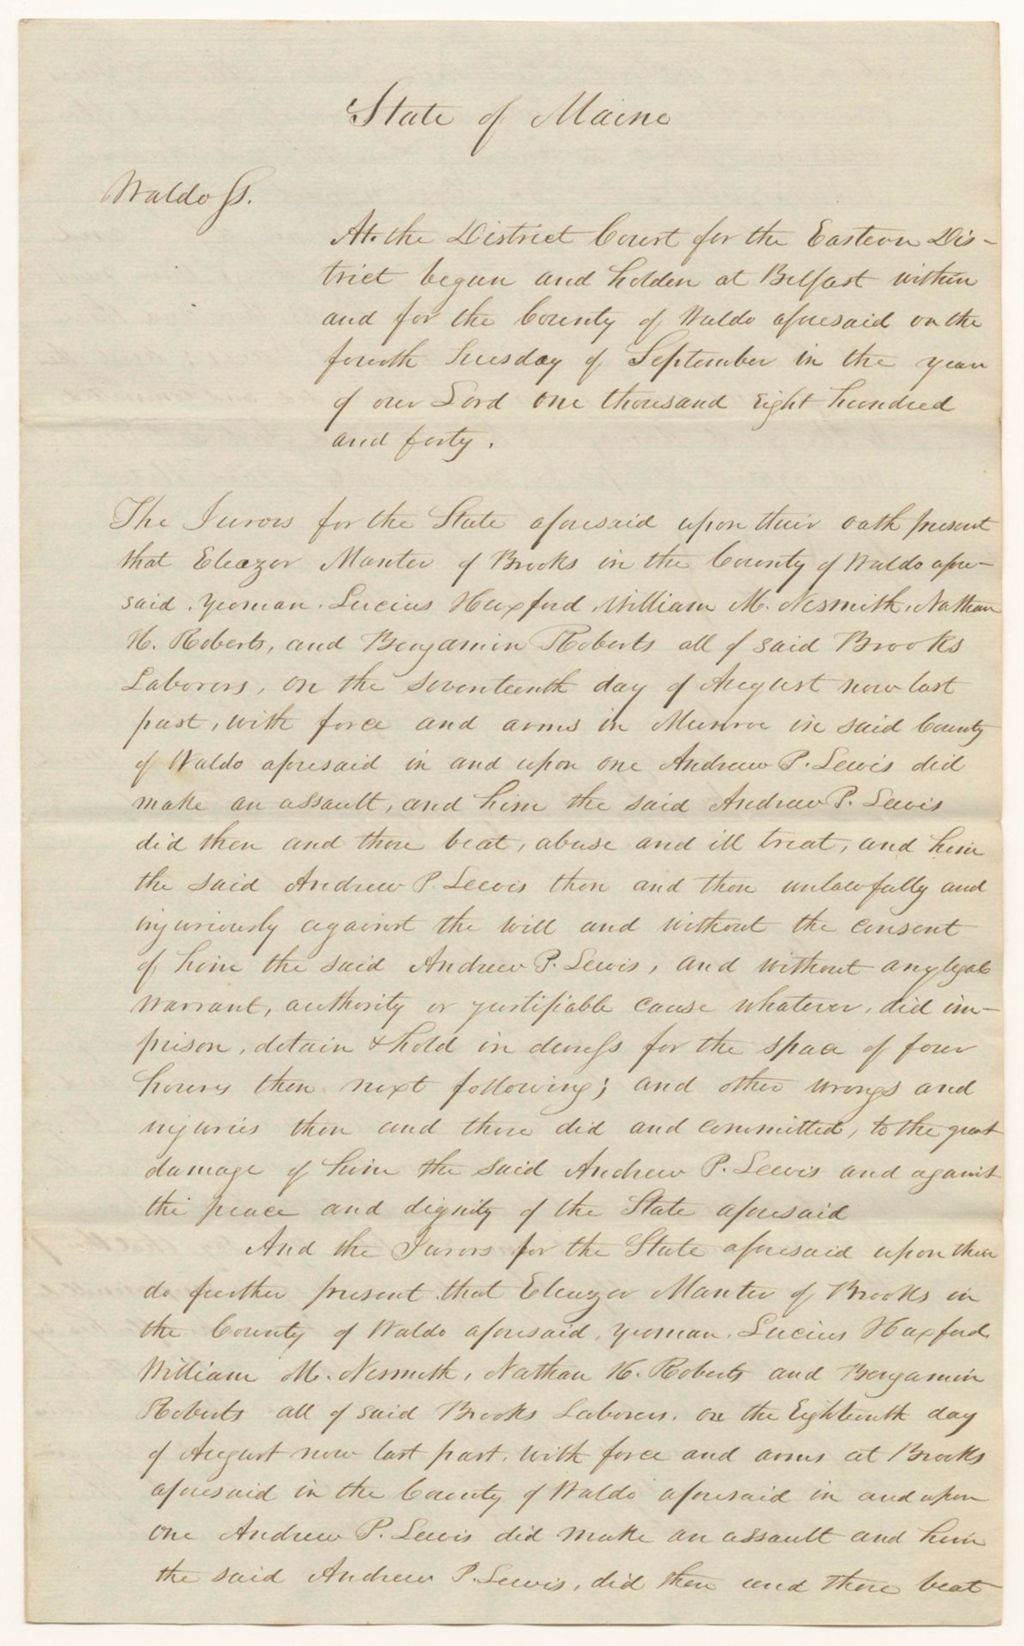 State of Maine
Waldo ss.
At the District Court for the Eastern Dis-
trict began and holden at Belfast within
and for the County of Waldo aforesaid on the
fourth Tuesday of September in the year
of our Lord one thousand eight hundred
and forty.
The Jurors for the State aforesaid upon their oath present
that Eleazer Manter of Brooks in the County of Waldo afore-
said, yeoman, Lucius Huxford, William M. Nesmith, Nathan
H. Roberts, and Benjamin Roberts all of said Brooks
Laborers, on the seventeenth day of August now last
past, with force and arms in Munroe in said County
of Waldo aforesaid in and upon one Andrew P. Lewis did
make an assault, and him the said Andrew P. Lewis
did then and there beat, abuse and ill treat, and him
the said Andrew P. Lewis then and then unlawfully and
injuriously against the will and without the consent
of him the said Andrew P. Lewis, and without any legal
warrant, authority or justifiable cause whatever, did im-
prison, detain & hold in duress for the space of four
hours then next following; and other wrongs and
injuries then and there did and committed, to the great
damage of him the said Andrew P. Lewis and against
the peace and dignity of the State aforesaid
And the Jurors for the State aforesaid upon their
do further present that Eleazer Manter of Brooks in
the County of Waldo aforesaid, yeoman, Lucius Haxford,
William M. Nesmith, Nathan H. Roberts and Benjamin
Roberts all of said Brooks Laborers, on the Eighteenth day
of August now last past, with force and arms at Brooks
aforesaid in the County of Waldo aforesaid in and upon
one Andrew P. Lewis did make an assault and him
the said Andrew P. Lewis, did then and there beat